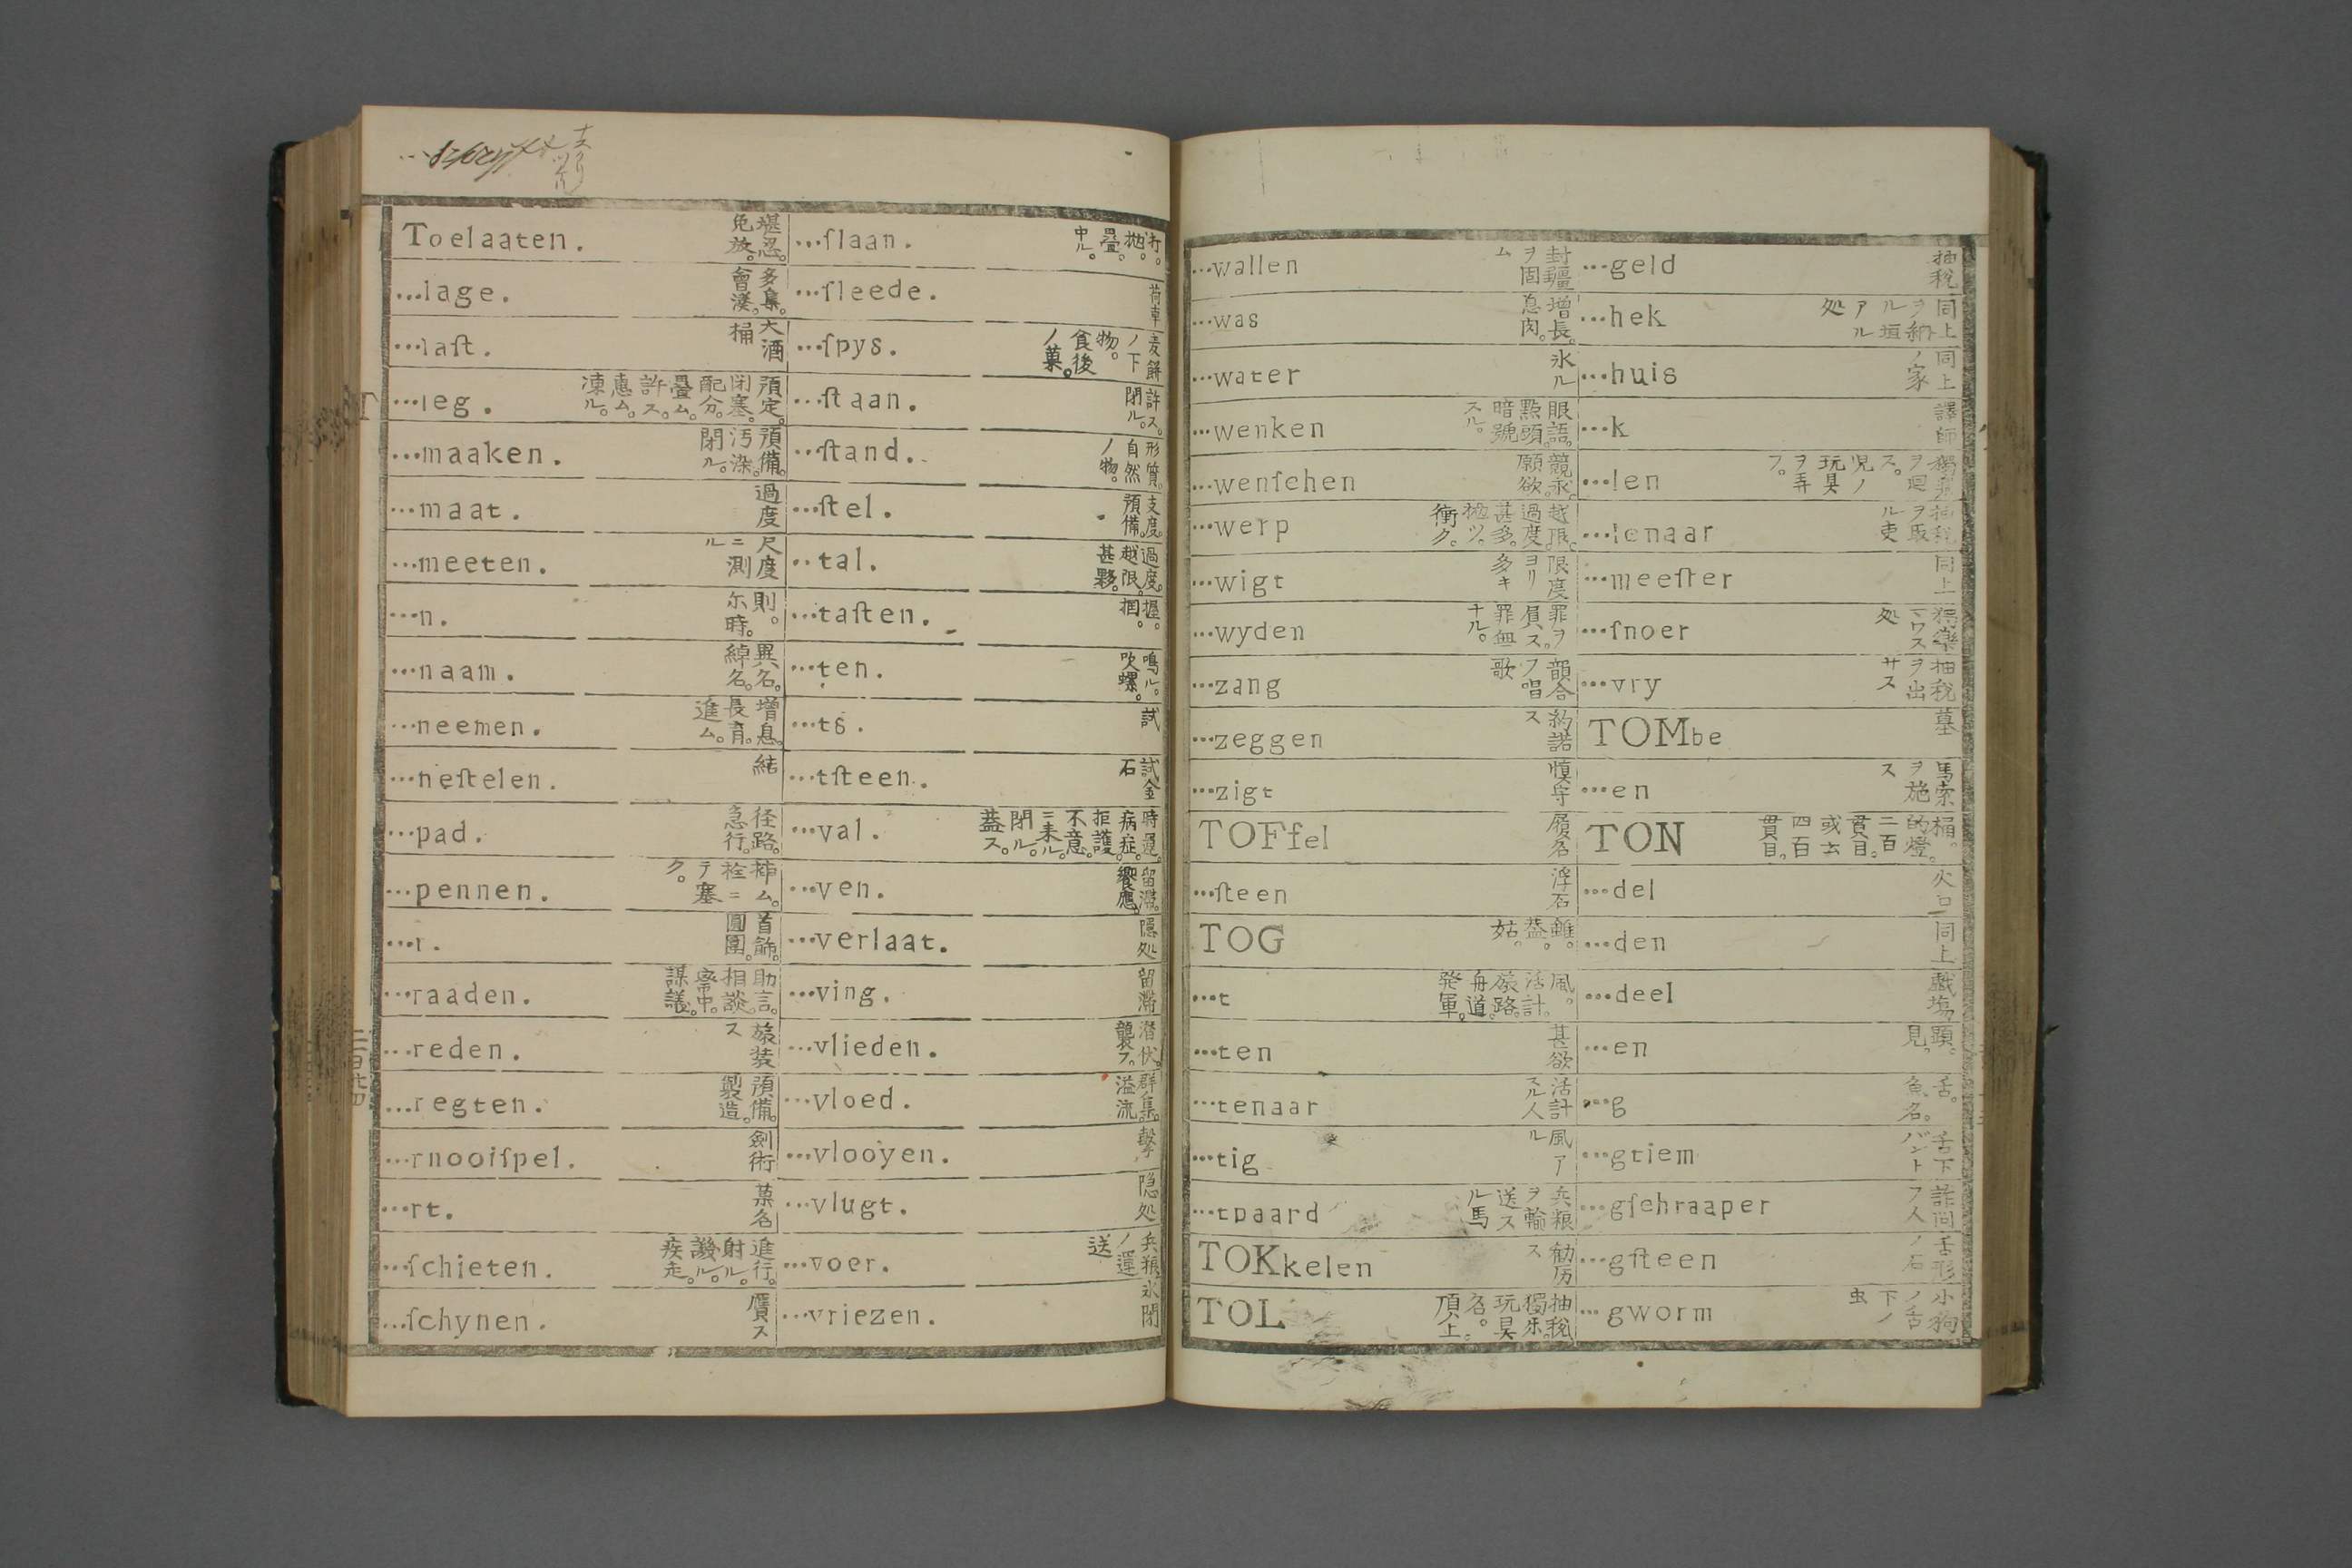 Toelaaten. 堪忍。免放。
...lage. 多集。會湊。
...laſt. 大酒桶
...leg. 預定。閉塞。配分。疊ム。許ス。惠ム。凍ル。
...maaken. 預備。汚染。閉ル。
...maat. 過度
...meeten. 尺度ニ測ル
...n. 則。尓時。
...naam. 異名。綽名。
...neemen. 増息。長育。進ム。
...neſtelen. 結
...pad. 径路。急行。
...pennen. 挿ム。栓ニテ塞ク。
...r. 首飾。圓圍。
...raaden. 助言。相談。密中。謀議。
...reden. 旅装ス
...regten. 預備。製造。
...rnooiſpel. 劍術
...rt. 菓名
...ſchieten. 進行。射ル。發ル。疾走。
...ſchynen. 贋ス
...ſlaan. 打。抛。疊。中ル。
...ſleede. 荷車
...ſpys. 麦餅ノ下物。食後ノ菓。
...ſtaan. 許ス。閉ル。
...ſtand. 形質。自然ノ物。
...ſtel. 支度。預備。
...tal. 過度。越限。甚夥。
...taſten. 握。掴。
...ten. 鳴ル。吹螺。
...ts. 試
...tſteen. 試金石
...val. 時運。病症。拒護。不意ニ来ル。閉ル。蓋ス。
...ven. 留滯。饗應。
...verlaat. 隱処
...ving. 留滯
...vlieden. 潜伏。襲フ。
...vloed. 群集。溢流
...vlooyen. 擊
...vlugt. 隐処
...voer. 兵粮ノ運送
...vriezen. 氷閉
...wallen 封疆ヲ固ム
...was 増長。息肉。
...water 氷ル
...wenken 眼語。點頭。暗號スル。
...wenſchen 競求。願欲。
...werp 越限。過度。甚多。抛ツ。衝ク。
...wigt 限度ヨリ多キ
...wyden 罪ヲ負ス。罪無ナル。
...zang 韻合フ唱歌
...zeggen 約諾ス
...zigt 慎守
TOFfel 履名
...ſteen 浮石
TOG 雖。蓋。姑。
...t 風。活計。旅路。舟道。発軍。
...ten 甚欲
...tenaar 活計スル人
...tig 風アル
...tpaard 兵粮ヲ輸送スル馬
TOKkelen 勧厉ス
TOL 抽税。獨乐。玩具名。頂上。
...geld 抽税
...hek 同上ヲ納ル垣アル処
...huis 同上ノ家
...k 譯師
...len ヲ廻ス。児ノ玩具ヲ弄フ。
...lenaar 抽税ヲ取ル吏
...meeſter 同上
...ſnoer 処
...vry 抽税ヲ出サス
TOMbe 墓
...en 馬索ヲ施ス
TON 桶。的燈。二百貫目。或云四百貫目。
...del 火口
...den 同上
...deel 戯場
...en 顕。見。
...g 舌。魚名。
...griem 舌下バント
...gſehraaper 詐問フ人
...gſteen 舌形ノ石
...gworm 小狗ノ舌下ノ虫